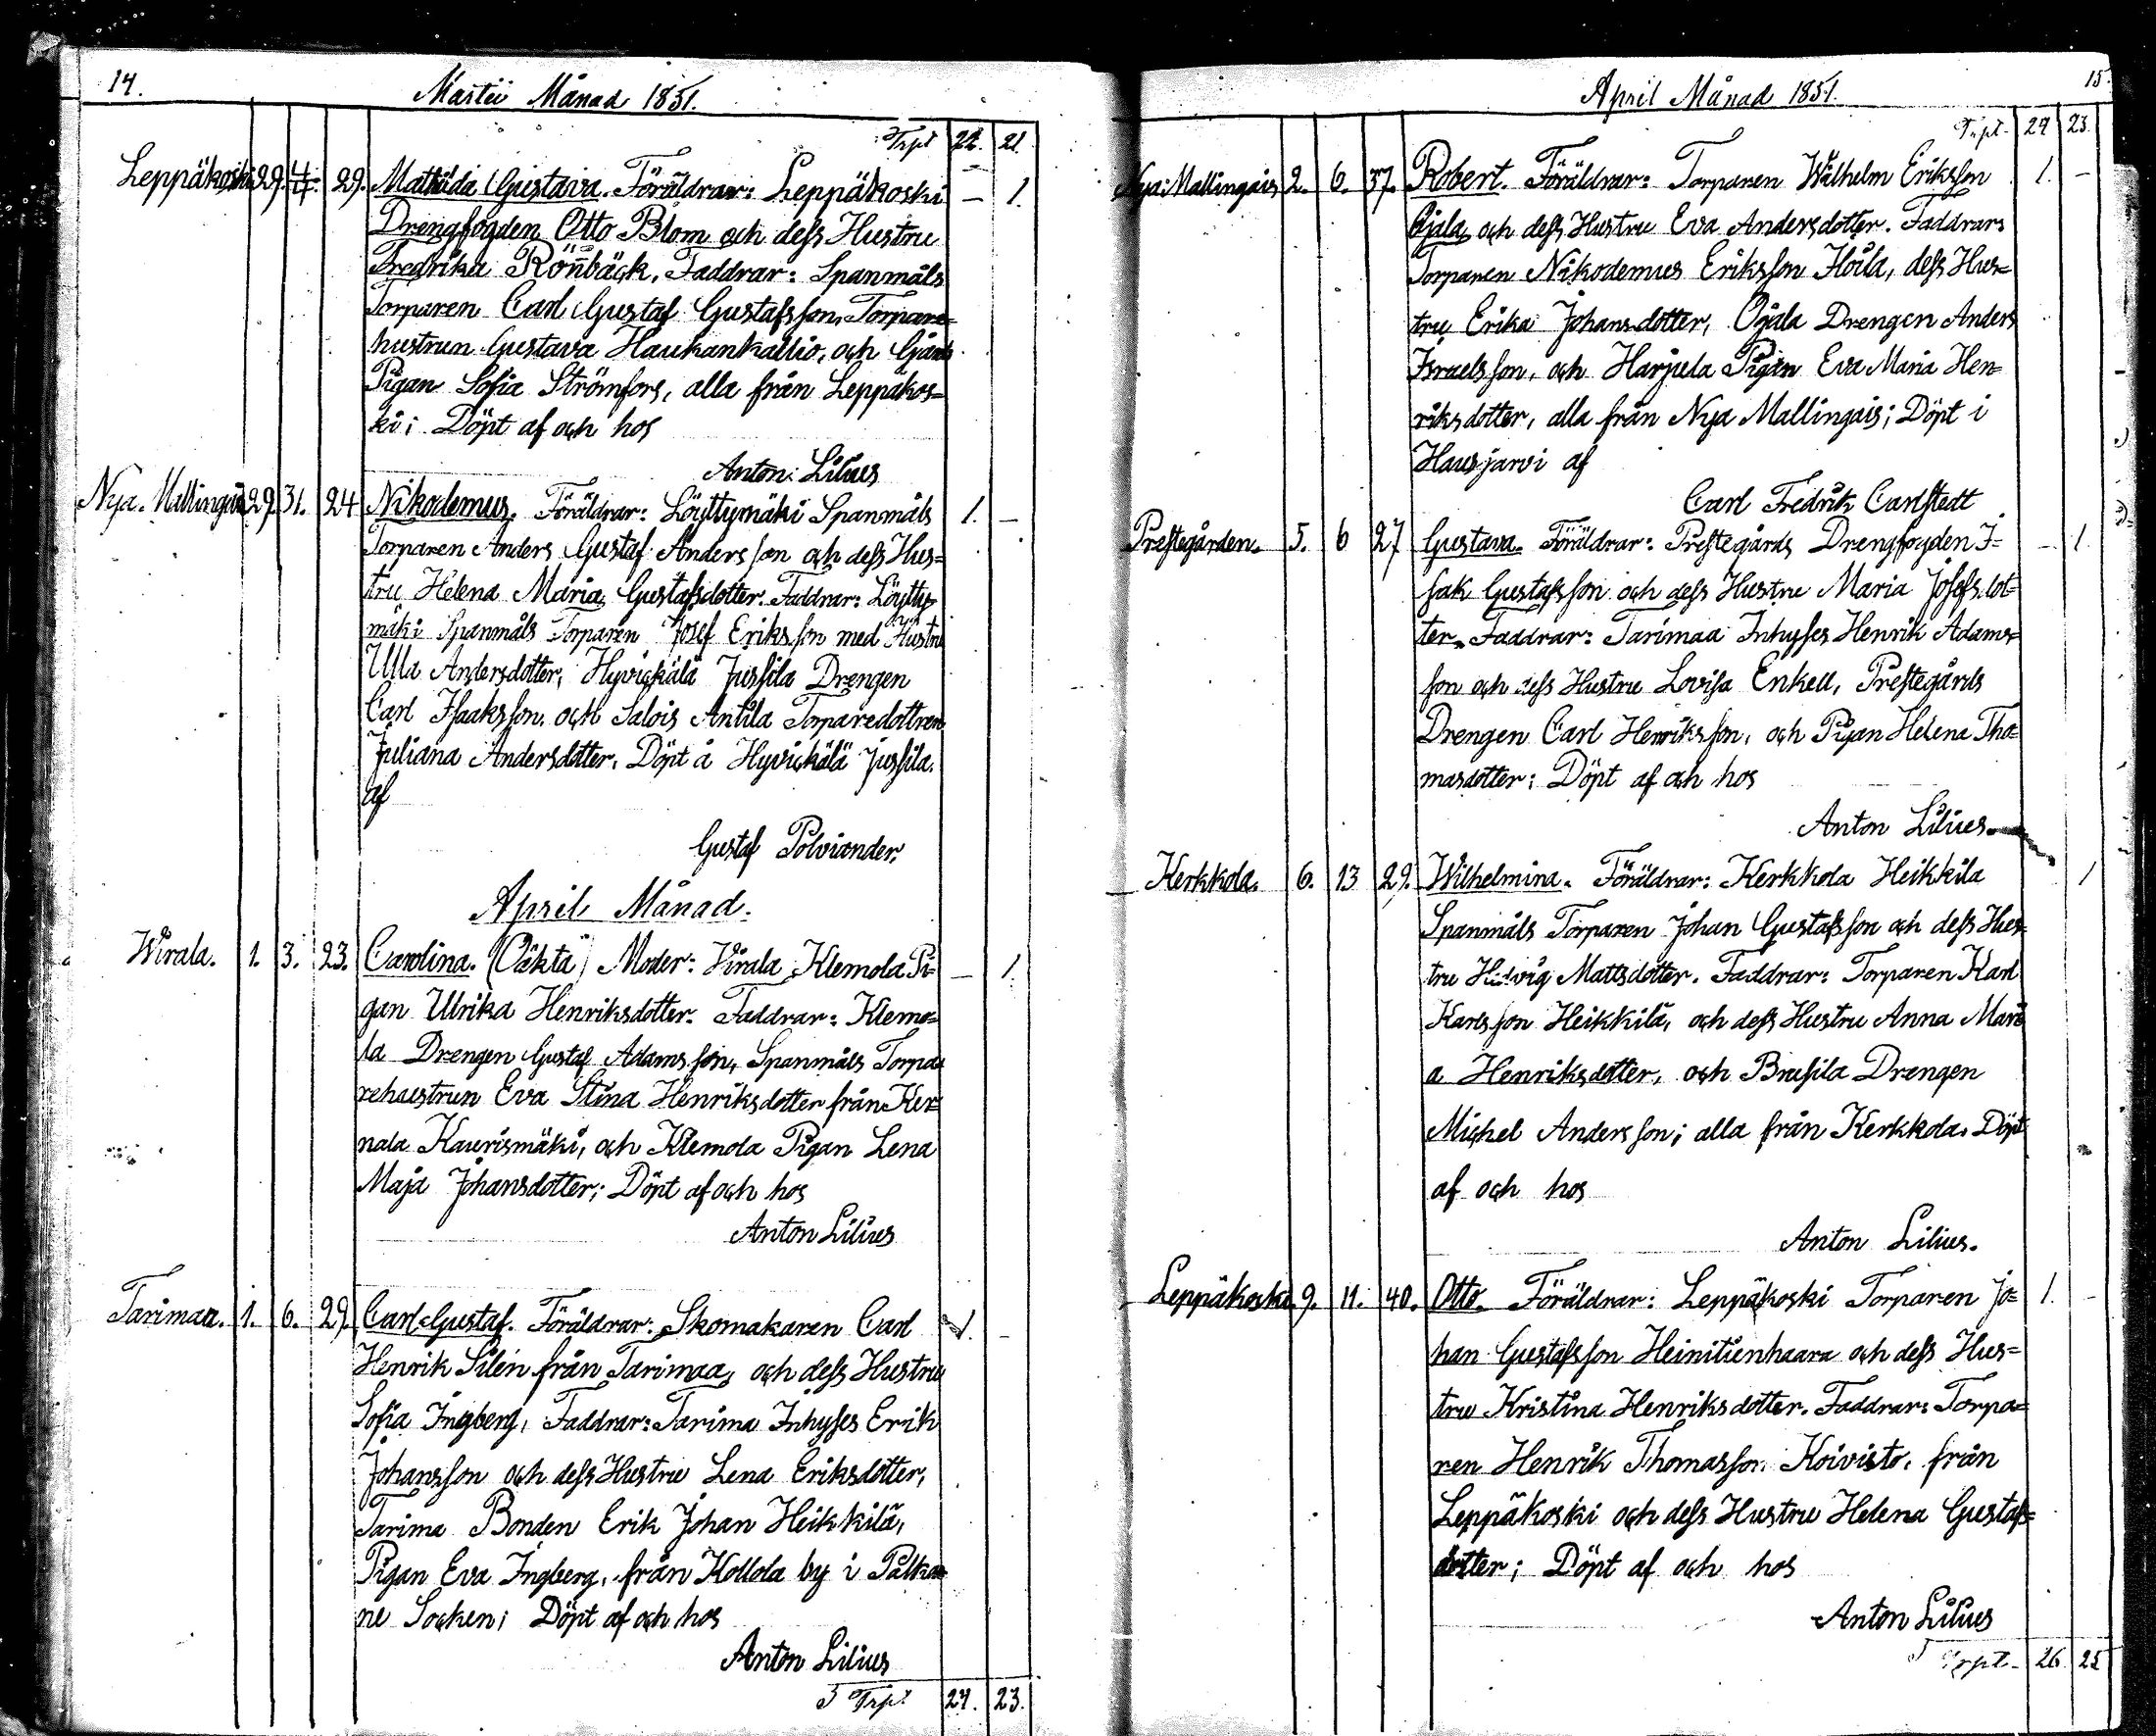 14.
Martii Månad 1851.
Trpt 22. 21.
Leppäkoski 29. 4/4. 29. Mathilda Gustava. Föräldrar: Leppäkoski — 1.
Drengfogden Otto Blom och dess Hustru
Fredrika Rönnbäck, Faddrar: Spanmåls
Torparen Carl Gustaf Gustafsson, Torpare=
hustrun Gustava Haukankallio, och Gårds
Pigan Sofia Strömfors, alla från Leppäkos=
ki; Döpt af och hos
Anton Lilius
Nya. Mallingais 29. 31. 24 Nikodemus. Föräldrar: Löyttymäki Spanmåls 1. —
Torparen Anders Gustaf Andersson och dess Hus=
tru Helena Maria Gustafsdotter. Faddrar: Löytty=
mäki Spanmåls Torparen Josef Eriksson med Hustru
Ulla Andersdotter, Hyvickälä Jussila Drengen
Carl Isaksson, och Salois Antila Torparedottren
Juliana Andersdotter. Döpt å Hyvickälä Jussila.
af
Gustaf Polviander.
April Månad.
Wirala. 1. 3. 23. Carolina. (Oäkta) Moder: Wirala Klemola Pi= — 1.
gan Ulrika Henriksdotter. Faddrar: Klemo=
la Drengen Gustaf Adamsson, Spanmåls Torpa=
rehustrun Eva Stina Henriksdotter från Ker=
nala Kaurismäki, och Klemola Pigan Lena
Maja Johansdotter; Döpt af och hos
Anton Lilius
Tarimaa. 1. 6. 29. Carl Gustaf. Föräldrar: Skomakaren Carl 1. —
Henrik Silén från Tarimaa, och dess Hustru
Sofia Ingberg, Faddrar: Tarima Inhyses Erik
Johansson och dess Hustru Lena Eriksdotter,
Tarima Bonden Erik Johan Heikkilä,
Pigan Eva Ingberg, från Kollola by i Pälkä=
ne Socken; Döpt af och hos
Anton Lilius
Trpt 24. 23.
15.
April Månad 1851.
Trpt. 24 23.
Nya Mallingais 2. 6. 37. Robert. Föräldrar: Torparen Wilhelm Eriksson 1. —
Ojala och dess Hustru Eva Andersdotter. Faddrar:
Torparen Nikodemus Eriksson Höilä, dess Hus=
tru Erika Johansdotter, Ojala Drengen Anders
Israelsson, och Harjula Pigan Eva Maria Hen=
riksdotter, alla från Nya Mallingais; Döpt i
Hausjärvi af
Carl Fredrik Carlstedt
Prestegården. 5. 6 27 Gustava. Föräldrar: Prestegårds Drengfogden I= — 1.
sak Gustafsson och dess Hustru Maria Josefsdot=
ter. Faddrar: Tarimaa Inhyses Henrik Adams=
son och dess Hustru Lovisa Enkell, Prestegårds
Drengen Carl Henriksson, och Pigan Helena Tho=
masdotter; Döpt af och hos
Anton Lilius
Kerkkola. 6. 13 29. Wilhelmina. Föräldrar: Kerkkola Heikkila 1
Spanmåls Torparen Johan Gustafsson och dess Hus=
tru Hedvig Mattsdotter. Faddrar: Torparen Karl
Karlsson Heikkilä, och dess Hustru Anna Mari=
a Henriksdotter, och Brusila Drengen
Michel Andersson; alla från Kerkkola. Döpt
af och hos
Anton Lilius.
Leppäkoski. 9. 11. 40. Otto. Föräldrar: Leppäkoski Torparen Jo= 1. —
han Gustafsson Heinitienhaara och dess Hus=
tru Kristina Henriksdotter. Faddrar: Torpa=
ren Henrik Thomasson Koivisto, från
Leppäkoski och dess Hustru Helena Gustafs=
dotter; Döpt af och hos
Anton Lilius
Trpt. 26 25